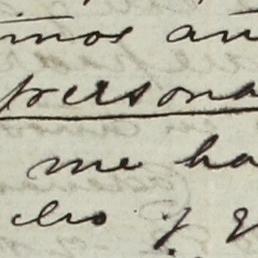 timos añ
persona
me ha
cho y q